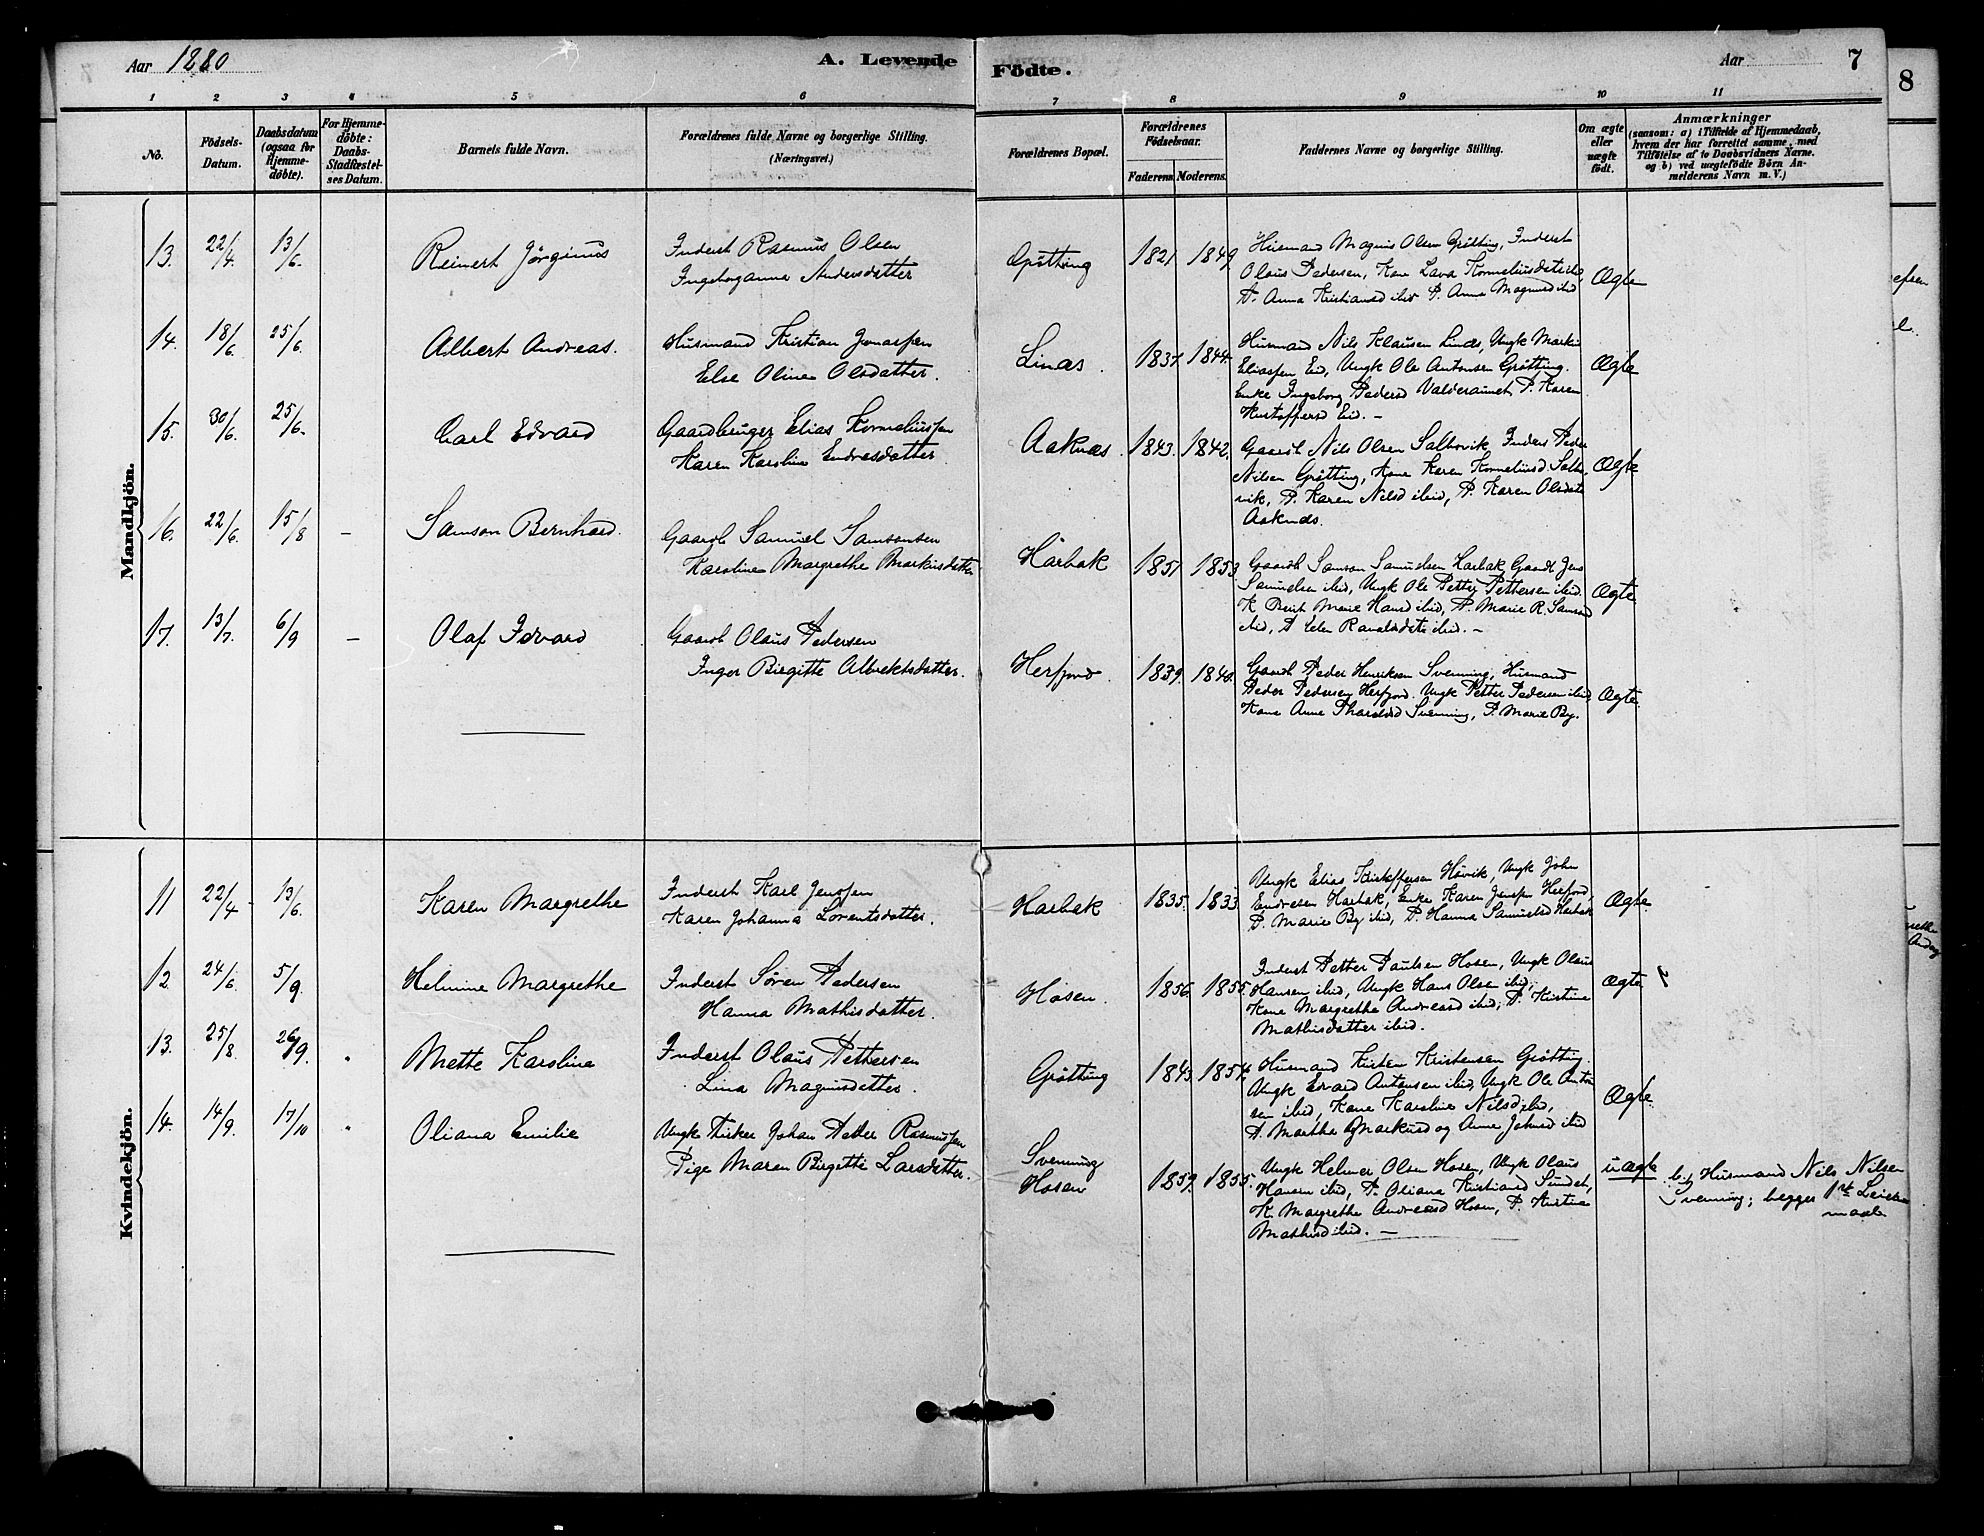 Aar 1880
A. Levende
Födte.
Aar
7
8
1 2 3 4 5 6 7 8 9 10 11
No.
Födsels-
Datum.
Daabsdatum
(ogsaa for
Hjemme-
döbte).
For Hjemme-
döbte:
Daabs-
Stadfæstel-
ses Datum.
Barnets fulde Navn.
Forældrenes fulde Navne og borgerlige Stilling.
(Næringsvei.)
Forældrenes Bopæl.
Forældrenes
Födselsaar.
Faderens.
Moderens.
Faddernes Navne og borgerlige Stilling.
Om ægte
eller
uægte
födt.
Anmærkninger
(saasom: a) i Tilfælde af Hjemmedaab,
hvem der har forrettet samme, med
Tilföielse af to Daabsvidners Navne.
og b) ved uægtefödte Börn An-
melderens Navn m. V.)
Mandkjön.
13. 22/4. 13/6. Reinert Jörginus
Inderst Rasmus Olsen
Ingeboranna Andersdatter
Grötting 1821 1849
Husmand Magnus Olsen Grötting, Inderst
Olaus Pedersen, Kone Lava Korneliusdatter ibid,
P. Anna Kristiansd ibid P. Anne Magnusd ibid
Ægte
14. 18/6. 25/6. Albert Andreas.
Husmand Kristian Jonassen
Else Oline Olsdatter.
Linæs. 1837 1844.
Husmand Nils Klausen Linæs, Ungk Markus
Eliassen Eid, Ungk Ole Antonsen Grötting.
Enke Ingeborg Pedersd Valderaunet, P. Karen
Kristoffersd Eid. —
Ægte
15. 30/6. 25/6. Carl Edvard
Gaardbruger Elias Korneliussen
Karen Karoline Endresdatter
Aaknæs. 1843. 1842.
Gaardb Nils Olsen Saltvik Inderst Peder
Nilsen Grötting, Kone Karen Korneliusd Salt-
vik, P. Karen Nilsd ibid, P. Karen Olsdatter
Aaknæs.
Ægte
16. 22/6. 15/8 — Samson Bernhard.
Gaardb Samuel Samsonsen
Karoline Margrethe Markusdatter
Harbak 1851 1853.
Gaardb Samson Samuelsen Harbak, Gaardb Jens
Samuelsen ibid, Ungk Ole Petter Pettersen ibid.
K. Berit Marie Hansd ibid, P. Marie R. Samsd
ibid, P Elen ibid. —
Ægte
17. 13/7. 6/9 — Olaf Edvard
Gaardb Olaus Pedersen
Inger Birgitte Albrektsdatter.
Herfjord. 1839. 1840.
Gaardb Peder Henriksen Svenning, Husmand
Peder Pedersen Herfjord. Ungk Petter Pedersen ibid,
Kone Anne Tharaldsd Svenning, P. Marie By.
Ægte
Kvindekjön.
11 22/4 - 13/6. Karen Margrethe
Inderst Karl Jenssen
Karen Johanna Lorentsdatter.
Harbak 1835. 1833
Ungk Elias Kristoffersen Hövik, Ungk John
Endresen Harbak, Enke Karen Jensen Herfjord,
P. Marie By ibid, P. Hanna Samuelsd Harbak
Ægte.
12. 24/6. 5/9. Helmine Margrethe
Inderst Sören Pedersen
Hanna Mathisdatter.
Hosen. 1856. 1855.
Inderst Petter Paulsen Hosen, Ungk Olaus
Hansen ibid, Ungk Hans Olsen ibid,
Kone Margrethe Andreasd ibid; P. Kristine
Mathisdatter ibid.
Ægte
13. 25/8. 26/9. " Mette Karoline
Inderst Olaus Pettersen
Lina Magnusdatter.
Grötting 1843. 1854.
Husmand Kristen Kristensen Grötting.
Ungk Edvard Antonsen ibid, Ungk Ole Anton
sen ibid, Kone Karoline Nilsd ibid,
P. Martha Markusd og Anne Johnsd ibid
Ægte.
14. 14/9. 17/10 " Oliana Emilie
Ungk Fisker Johan Peder Rasmussen
Pige Maren Birgitte Larsdatter.
Svenning
Hosen 1859. 1855.
Ungk Helmer Olsen Hosen, Ungk Olaus
Hansen ibid, P. Oliana Kristiansd Sundet,
K. Margrethe Andreasd Hosen, P. Kristine
Mathisd ibid. —
uægte
b.) Husmand Nils Nilsen
Svenning; begges 1ste Leier-
maal